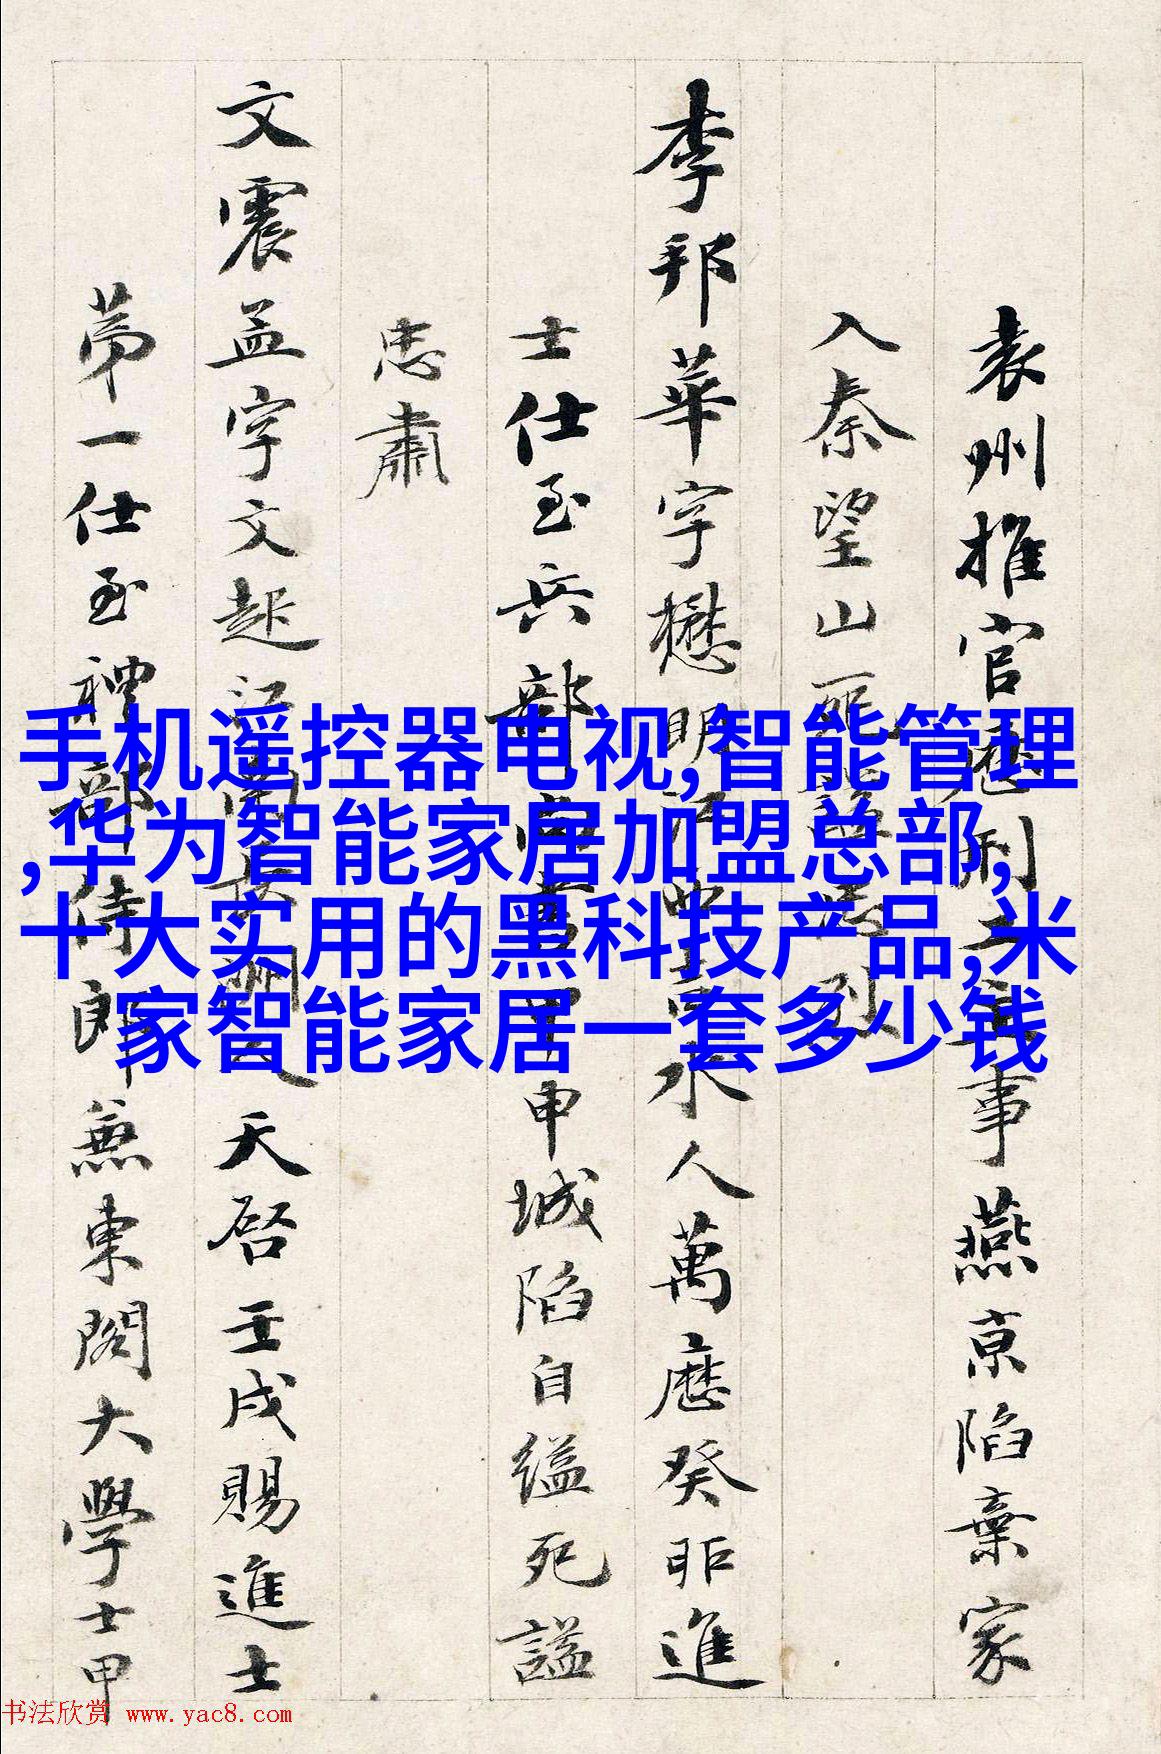 袁州推官歷刑主事燕京陷棄家
入秦望山死
李邦華字懋明江西吉水人萬曆癸卯進
士仕至兵部尚書甲申城陷自縊死謚
忠肅
文震孟字文起江天啓壬戌賜進士
第一仕至禮部侍郎兼東閣大學士甲
手机遥控器电视,智能管理
,华为智能家居加盟总部,
十大实用的黑科技产品,米
家智能家居一套多少钱
书法欣赏 www.yac8.com